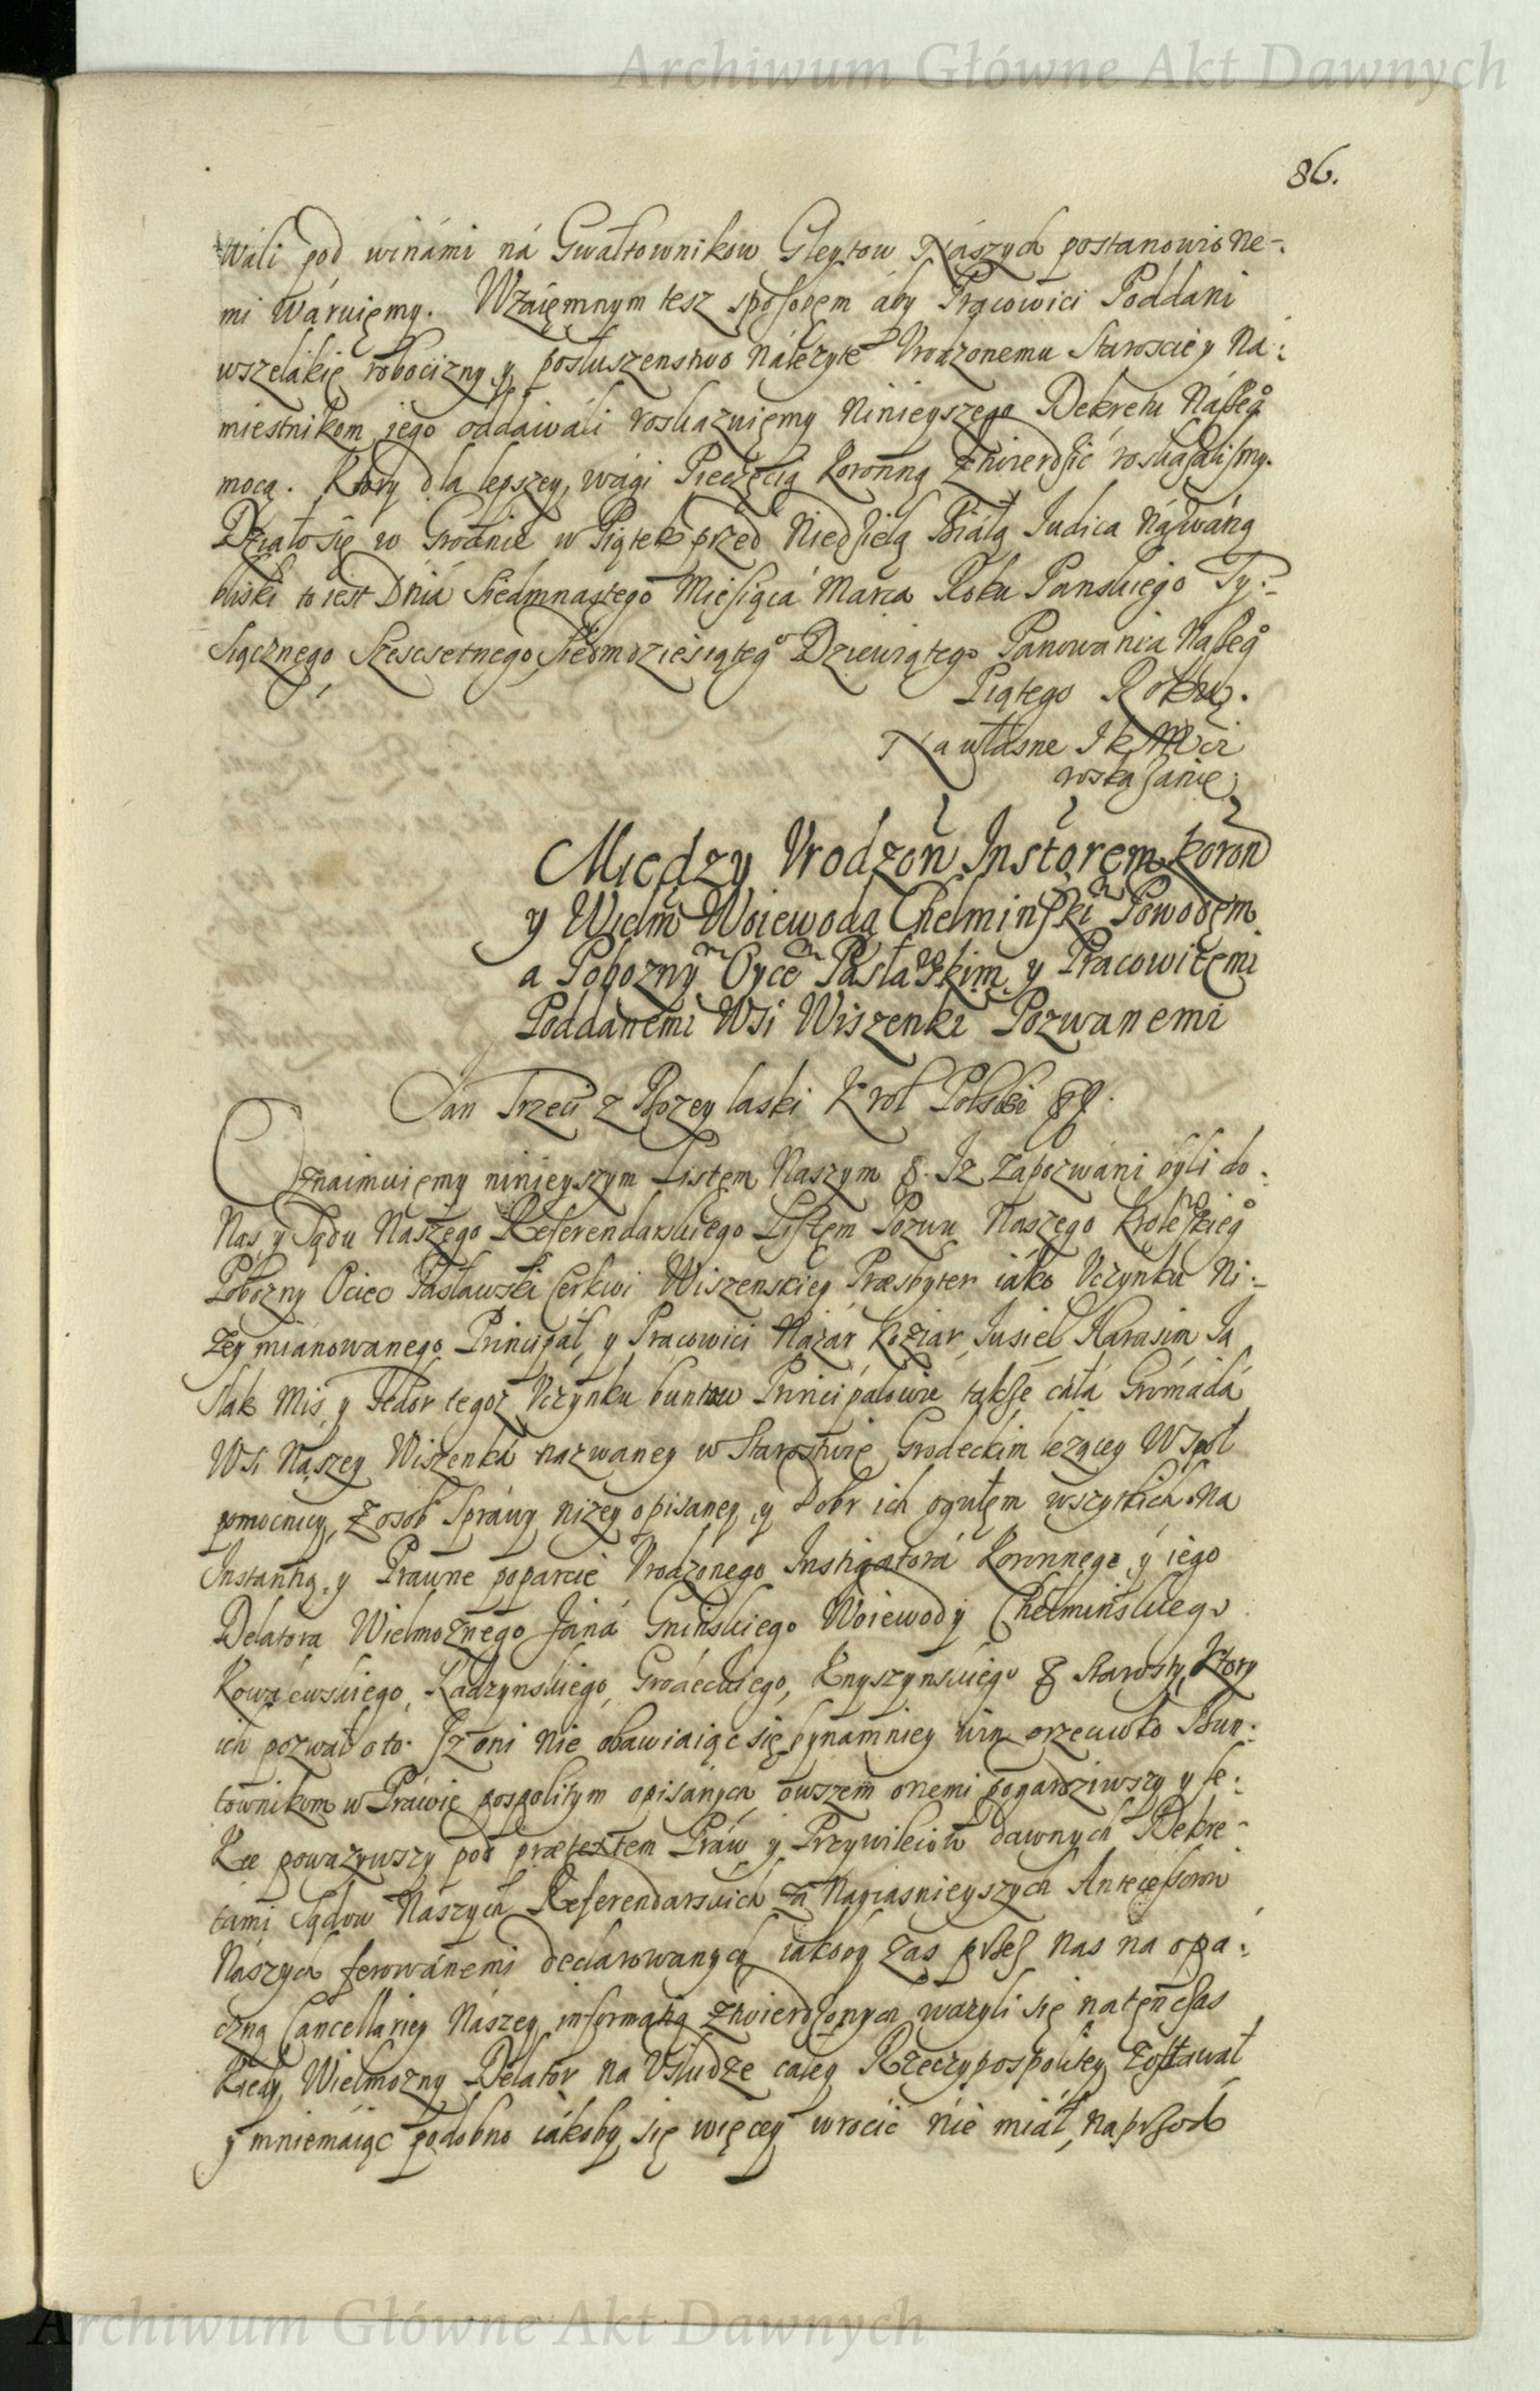 Archiwum Główne Akt Dawnych
86.
wáli pod winámi ná Gwałtownikow Gleytow Nászych postanowione-
mi wáruięmy. Wzáięmnym tesz sposobęm áby Pracowici Poddani
wszelákię robocizny y posłuszenstwo należyte Vrodzonemu Staroscie y Na:
miestnikom jego oddáwáli roskazuięmy ninieyszego Dekretu Nászeg°
mocą. Ktory dla lepszey wági Pieczęcią Koronną ztwierdzić roskazalismy.
Działo się w Grodnie w Piątek przed Niedzielą Białą Judica názwáną
bliski to iest Dniá Siedmnastego Miesiącá Marca Roku Panskiego Ty:
siącznego Szescsetnego Siedmdziesiąteg° Dziewiątego Panowania Naszeg°
Piątego Roku.
Na własne J K Mći
roskazanię.
Między Vrodzoń Instorem Koron
y Wielm Woiewodą Chełminskim Powodęm
a Pobozny Oyce Pasławskim y Pracowitęmi
Poddanemi Wsi Wiszenki Pozwanemi
Jan Trzeci z Bozey laski Krol Polski &.
Oznaimuięmy ninieyszym Listęm Naszym &. Iz zapozwáni byli do:
Nas y Sądu Naszego Referendarskiego Listęm Pozwu Naszego Krolewskieg°
Pobozny Ociec Pasławski Cerkwi Wiszenskiey Præsbyter iáko Vczynku ni:
zey miánowanego Principáł, y Pracowici Názár Koziar, Jusiel Harasim Ja
siak Mis, y Fedor tegoz Vczynku buntow Principałowie, także cáła Grómádá
Wsi Nászey Wiszenká názwaney w Starostwie Grodeckim leżącey Wspoł
pomocnicy, z osob Spráwy nizey opisaney, y Dobr ich ogułęm wszytkich. Na
Instantią, y Prawne poparcie Vrodzonego Instigatorá Koronnęgo, y iego
Delatora Wielmoznego Janá Gninskiego Woiewody Chełminskiego
Kowalewskiego, Rádzynskiego, Gródeckiego, Knyszynskiego & Starosty, Ktory
ich pozwał o to. Iz oni nie obawiaiąc się bynamniey win przeciwko Bun:
townikom w Práwię pospolitym opisánych owszem onemi pogardziwszy y le:
kce powazywszy pod prætextem Práw y Przywileiow dawnych Dekre-
tami Sądow Nászych Referendarskich zá Nayiasnieyszych Antecessorow
Nászych ferowánemi declarowanych iakoby zas przez nas na opa:
czną Cancellariey Nászey informatią ztwierdzonych wazyli się natęnczas
kiedy Wielmozny Delator na Vsłudze całey Rzeczypospolitey zostawał
y mniemáiąc podobno iákoby się więcey wrocić nie miáł, naprzod
Archiwum Główne Akt Dawnych